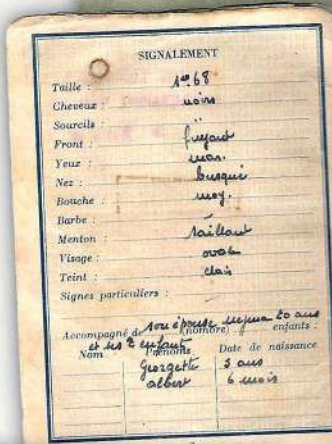 SIGNALEMENT
Taille : 1m68
Cheveux : noirs
Sourcils : "
Front : fuyant
Yeux : mar.
Nez : busqué
Bouche : moy.
Barbe :
Menton : saillant
Visage : ovale
Teint : clair
Signes particuliers :
Accompagné de son épouse 20 ans
(nombre) enfants :
et ses 2 enfants
Nom Prénoms Date de naissance
Georgette 3 ans
Albert 6 mois